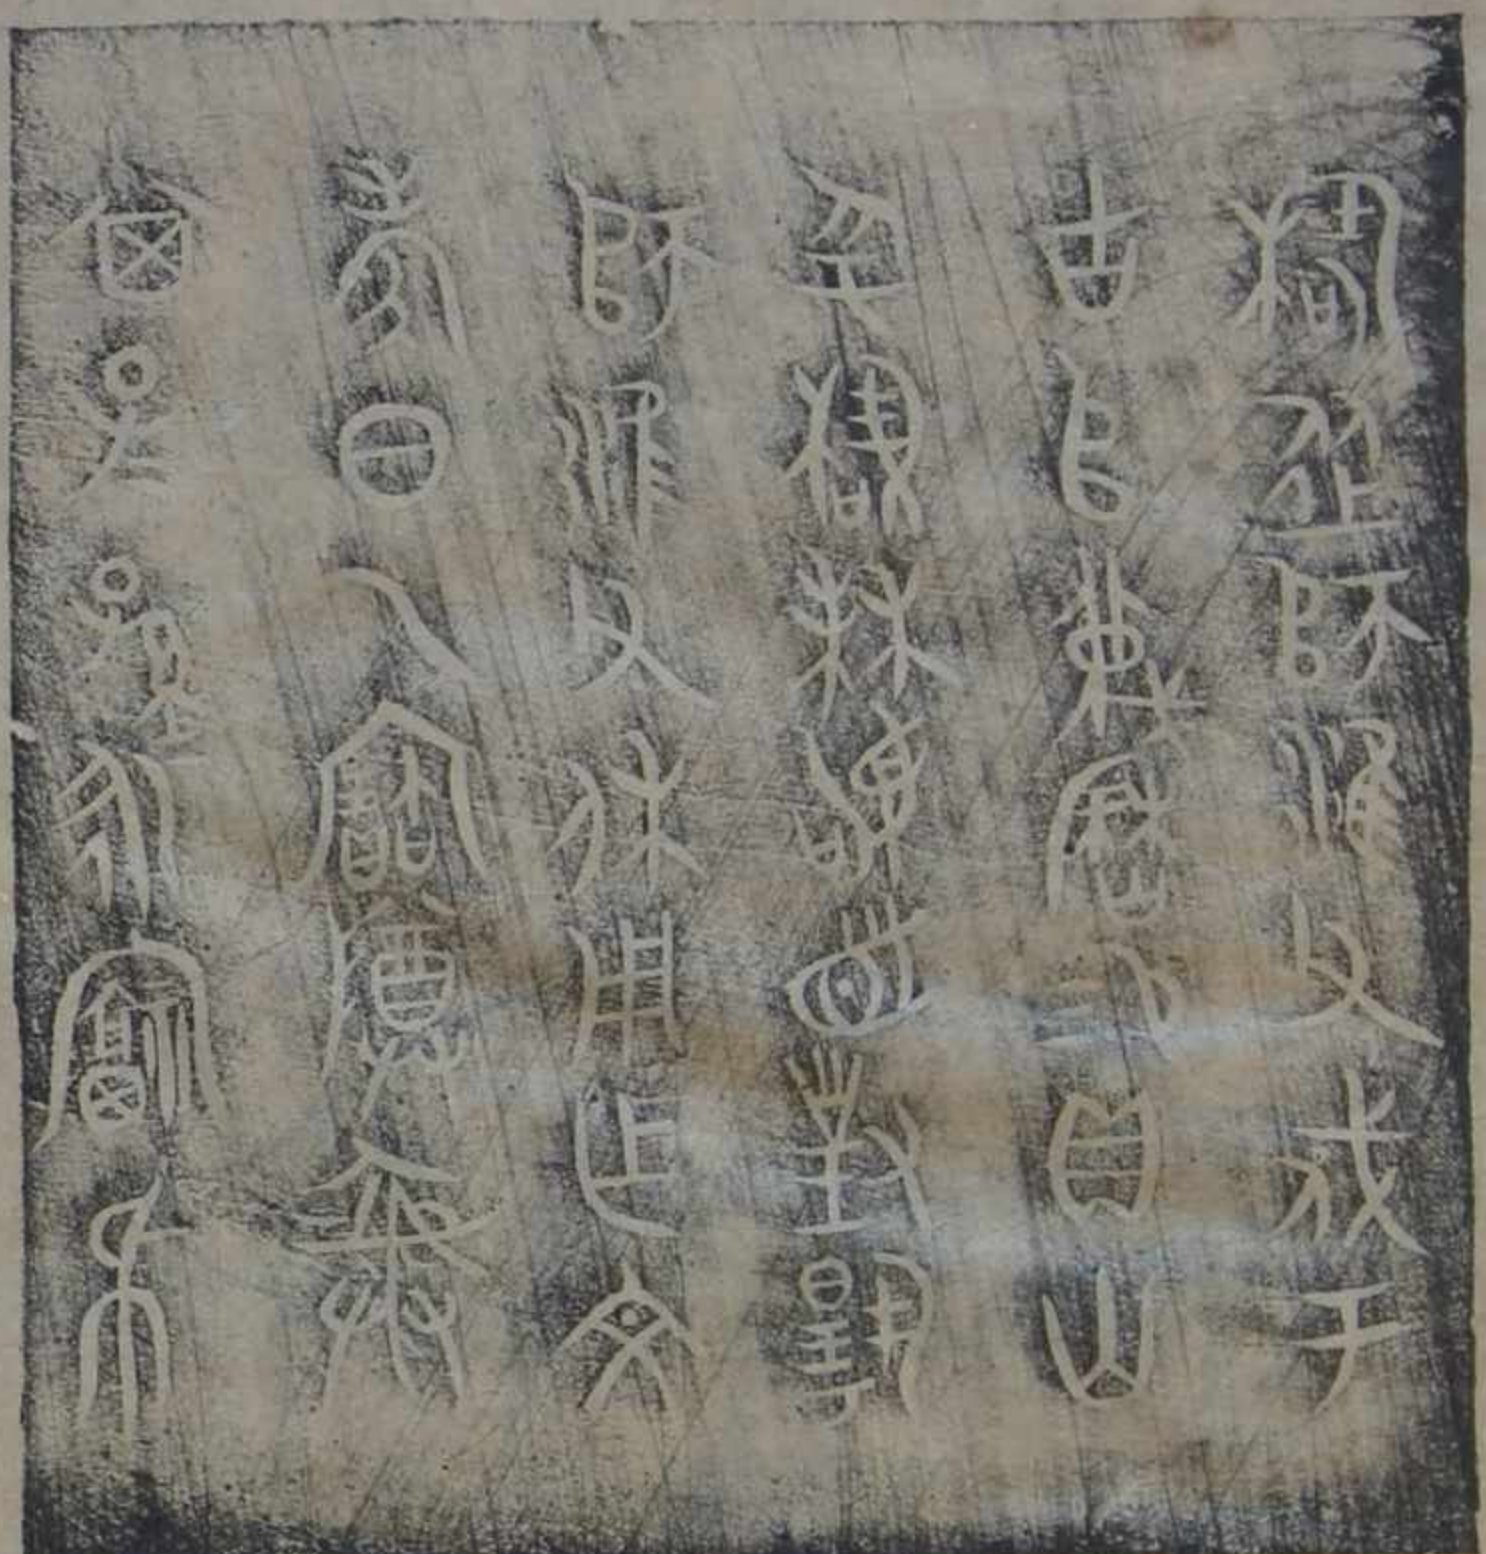 稽從師淮父戍于
古𠂤蔑曆易貝卅
寽稽拜稽首對揚
師淮父休用乍文
考日乙寶尊彝
其子孫永福